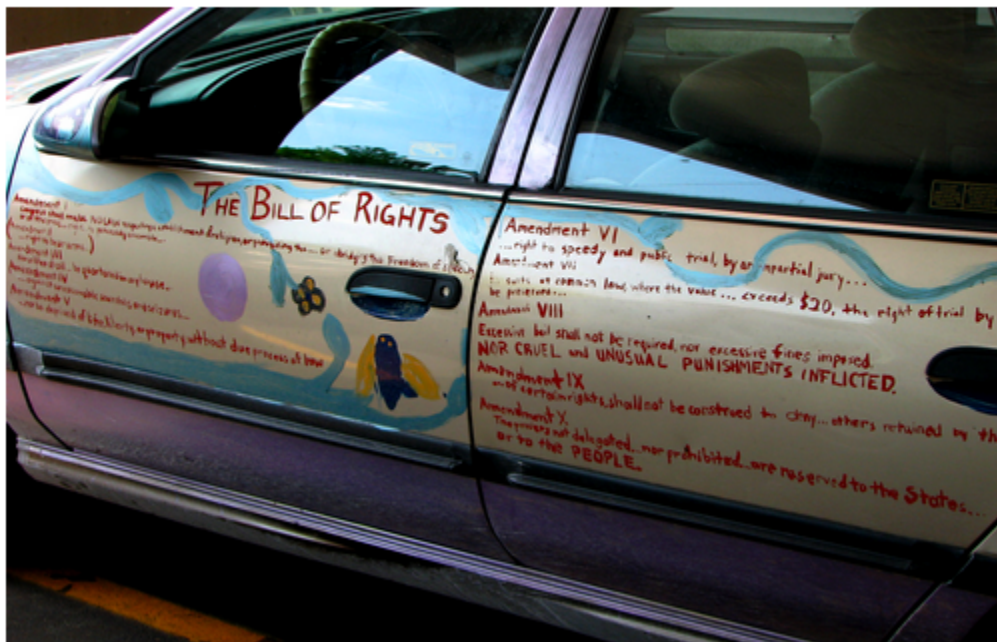 THE BILL OF RIGHTS
Amendment I
Congress shall make NO LAW respecting establishment of religion, or the Freedom of
Amendment
right to bear arms
Amendment III
Amendment IV
against unreasonable searches and seizures...
Amendment V
...nor be deprived of life, liberty, or property, without due process of law
Amendment VI
...right to speedy and public trial, by an impartial jury...
Amendment VII
In suits at common law, where the value ... exceeds $20, the right of trial by
be preserved...
Amendment VIII
Excessive bail shall not be required, nor excessive fines imposed,
NOR CRUEL and UNUSUAL PUNISHMENTS INFLICTED.
Amendment IX
...of certain rights, shall not be construed to deny... others retained by the
Amendment X
The powers not delegated... nor prohibited... are reserved to the States...
or to the PEOPLE.